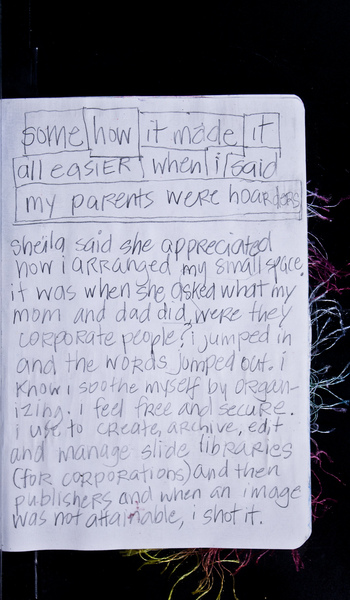 some how it made it
all easier when i said
my parents were hoarders
sheila said she appreciated
how i arranged my small space.
it was when she asked what my
mom and dad did, were they
corporate people? i jumped in
and the words jumped out. i
know i soothe myself by organ-
izing. i feel free and secure.
i use to create, archive, edit
and manage slide libraries
(for corporations) and then
publishers and when an image
was not attainable, i shot it.